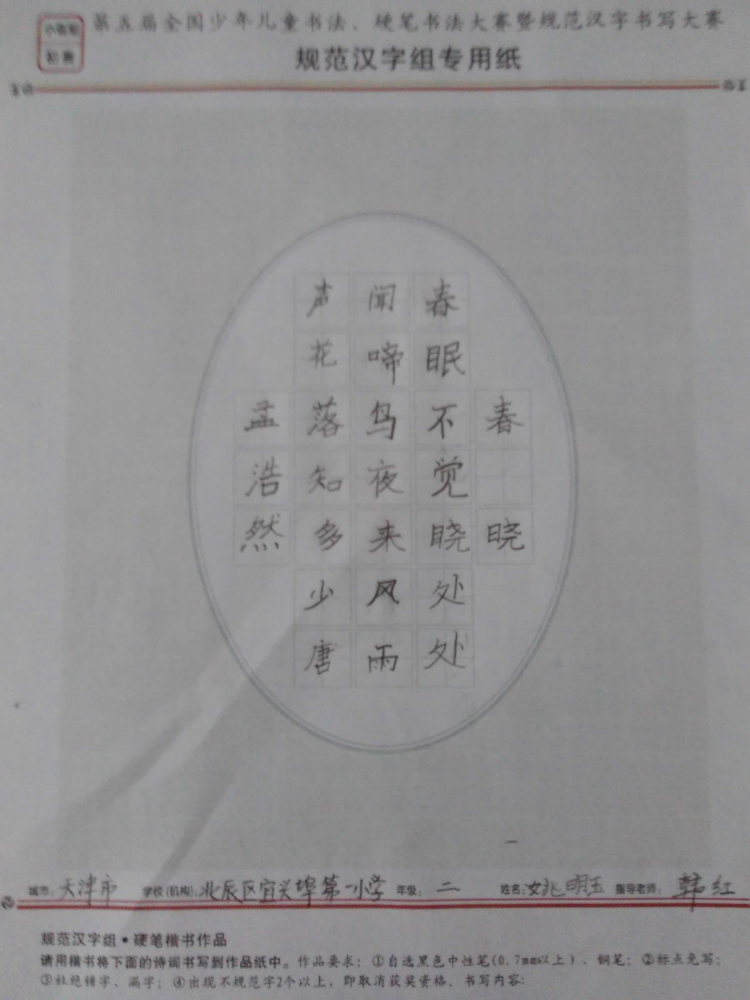 第五届全国少年儿童书法、硬笔书法大赛暨规范汉字书写大赛
初赛
规范汉字组专用纸
春晓
春眠不觉晓处处
闻啼鸟夜来风雨
声花落知多少唐
孟浩然
城市：天津市 学校(机构)：北辰区宜兴埠第一小学 年级：二 姓名：姚明玉 指导老师：韩红
规范汉字组·硬笔楷书作品
请用楷书将下面的诗词书写到作品纸中。作品要求：①自选黑色中性笔(0.7mm以上)、钢笔；②标点免写；
③杜绝错字、漏字；④出现不规范字2个以上，即取消获奖资格。书写内容：